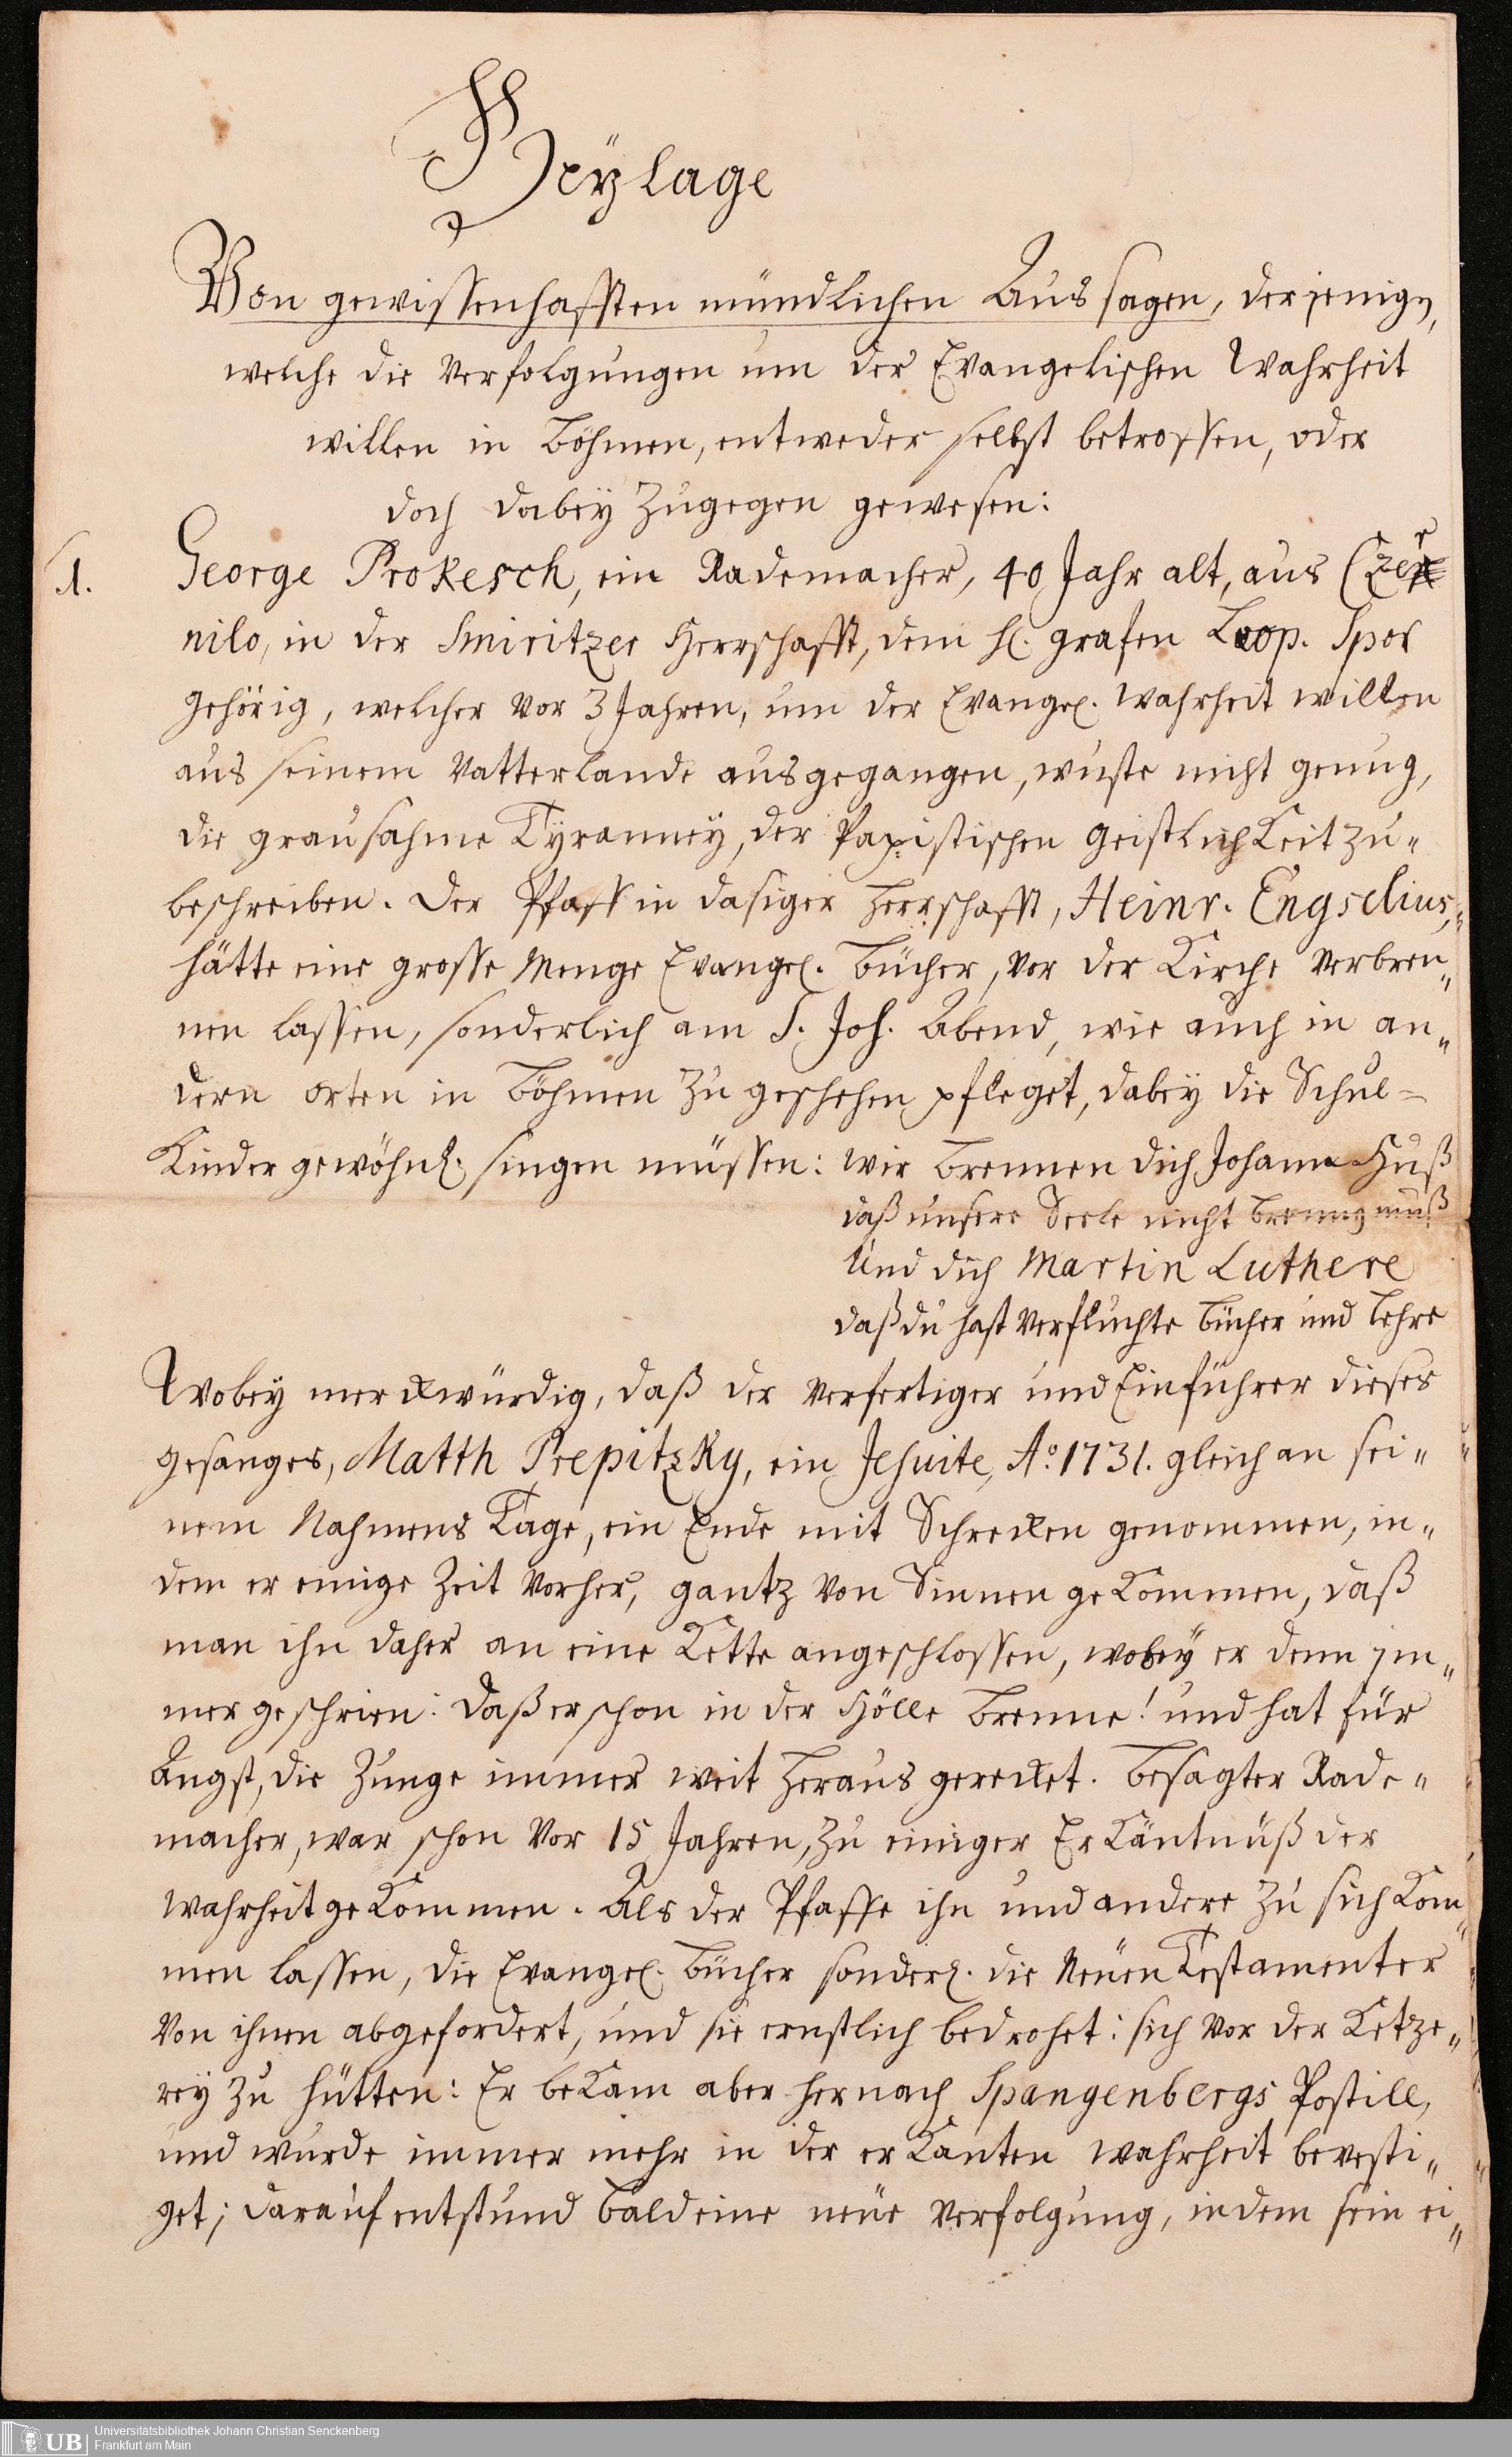 Beylage
Von gewissenhafften mündlichen Aussagen, derjenigen,
welche die Verfolgungen um der Evangelischen Wahrheit
willen in Böhmen, entweder selbst betroffen, oder
doch dabey zugegen gewesen:
1. George Prokesch, ein Rademacher, 40 Jahr alt, aus Czer
nilo, in der Smiritzer Herrschafft, dem H. Grafen Leop. Spork
gehörig, welcher vor 3 Jahren, um der Evangel. Wahrheit willen
aus seinem Vatterlande ausgegangen, wuste nicht genug,
die grausahme Tyranney, der Papistischen Geistlichkeit zu„
beschreiben. Der Pfaff in dasiger Herrschafft, Heinr. Engselius,„
hätte eine grosse Menge Evangel. Bücher, vor der Kirche verbren„
nen lassen, sonderlich am S. Joh. Abend, wie auch in an„
dern Orten in Böhmen zu geschehen pfleget, dabey die Schul=
Kinder gewöhnl. singen müssen: Wir brennen dich Johann Huß
daß unsere Seele nicht brennen muß
Und dich Martin Luthere
daß du hast verfluchte Bücher und Lehre
Wobey merckwürdig, daß der Verfertiger und Einführer dieses
Gesanges, Matth Prepitzky, ein Jesuite, Aō. 1731. gleich an sei„
nem Nahmens Tage, ein Ende mit Schrecken genommen, in„
dem er einige Zeit vorher, gantz von Sinnen gekommen, daß
man ihn daher an eine Kette angeschlossen, wobey er denn im„
mer geschrien: daß er schon in der Hölle brenne! und hat für
Angst, die Zunge immer weit heraus gerecket. Besagter Rade„
macher, war schon vor 15 Jahren, zu einiger Erkäntnüß der
Wahrheit gekommen. Als der Pfaffe ihn und andere zu sich kom„
men lassen, die Evangel. Bücher sonderl. die Neuen Testamenter
von ihnen abgefordert, und sie ernstlich bedrohet: sich vor der Ketze„
rey zu hütten: Er bekam aber hernach Spangenbergs Postill,
und wurde immer mehr in der erkanten Wahrheit bevesti„
get; darauf entstund bald eine neue Verfolgung, indem sein ei„
UB
Universitätsbibliothek Johann Christian Senckenberg
Frankfurt am Main